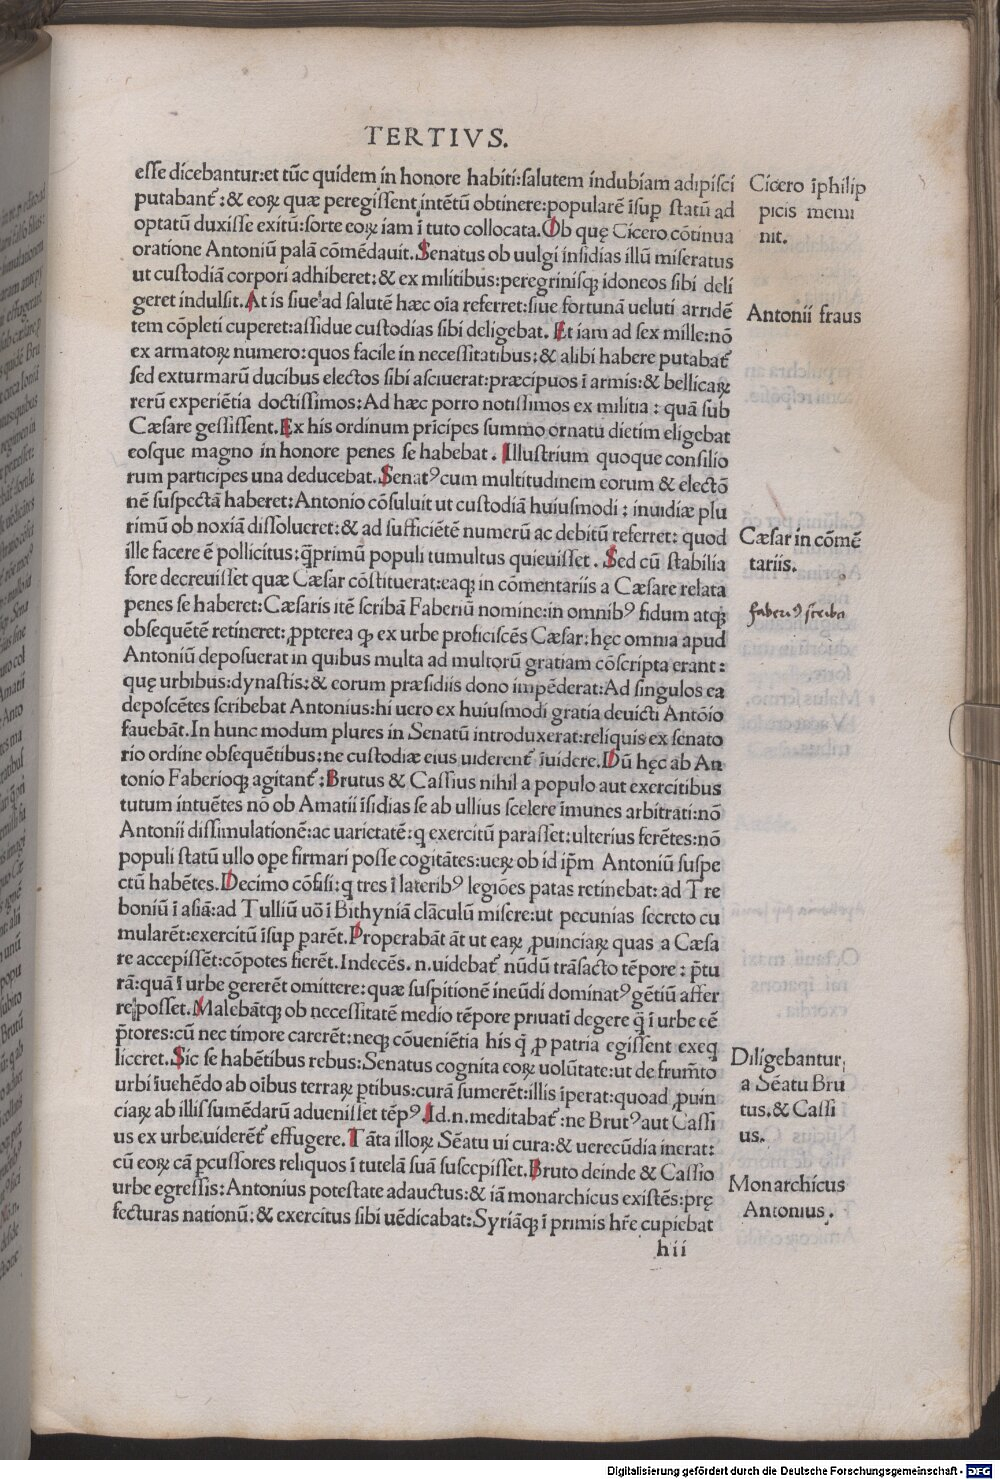 TERTIVS.
esse dicebantur:et tūc quidem in honore habiti:salutem indubiam adipisci
putabant̄:& eoꝝ quæ peregissent intētū obtinere:popularē īsuꝑ statū ad
optatū duxisse exitū:sorte eoꝝ iam ī tuto collocata.Ob quę Cicero cōtinua
oratione Antoniū palā cōmēdauit.Senatus ob uulgi insidias illū miseratus
ut custodiā corpori adhiberet:& ex militibus:peregrinisqꝫ idoneos sibi deli
geret indulsit.At is siue ad salutē hæc oīa referret:siue fortunā ueluti arridē
tem cōpleti cuperet:assidue custodias sibi deligebat. Et iam ad sex mille:nō
ex armatoꝝ numero:quos facile in necessitatibus:& alibi habere putabat̄
sed exturmarū ducibus electos sibi asciuerat:præcipuos ī armis:& bellicaꝝ
rerū experiētia doctissimos:Ad hæc porro notissimos ex militia: quā sub
Cæsare gessissent.Ex his ordinum pricipes summo ornatu dietim eligebat
eosque magno in honore penes se habebat. Illustrium quoque consilio
rum participes una deducebat.Senatꝰ cum multitudinem eorum & electō
nē suspectā haberet:Antonio cōsuluit ut custodiā huiusmodi: inuidiæ plu
rimū ob noxiā dissolueret:& ad sufficiētē numerū ac debitū referret: quod
ille facere ē pollicitus:q̄primū populi tumultus quieuisset. Sed cū stabilia
fore decreuisset quæ Cæsar cōstituerat:eaqꝫ in cōmentariis a Cæsare relata
penes se haberet:Cæsaris itē scribā Faberiū nomine:in omnibꝰ fidum atqꝫ
obsequētē retineret:ꝓpterea qꝫ ex urbe proficiscēs Cæsar:hęc omnia apud
Antoniū deposuerat in quibus multa ad multorū gratiam cōscripta erant:
quę urbibus:dynastis:& eorum præsidiis dono impēderat:Ad singulos ea
deposcētes scribebat Antonius:hi uero ex huiusmodi gratia deuicti Antōio
fauebāt.In hunc modum plures in Senatū introduxerat:reliquis ex senato
rio ordine obsequētibus:ne custodiæ eius uiderent̄ īuidere.Dū hęc ab An
tonio Faberioqꝫ agitant̄:Brutus & Cassius nihil a populo aut exercitibus
tutum intuētes nō ob Amatii īsidias se ab ullius scelere īmunes arbitrati:nō
Antonii dissimulationē:ac uarietatē:q exercitū parasset:ulterius ferētes:nō
populi statū ullo ope firmari posse cogitātes:ueꝝ ob id ip̄m Antoniū suspe
ctū habētes.Decimo cōfisi:q tres ī lateribꝰ legiōes patas retinebat: ad Tre
boniū ī asiā:ad Tulliū uō ī Bithyniā clāculū misere:ut pecunias secreto cu
mularēt:exercitū īsuꝑ parēt.Properabāt āt ut eaꝝ ꝓuinciaꝝ quas a Cæsa
re accepissēt:cōpotes fierēt.Indecēs. n.uidebat̄ nūdū trāsacto tēpore: p̄tu
rā:quā ī urbe gererēt omittere:quæ suspitionē ineūdi dominatꝰ gētiū affer
re posset.Malebātqꝫ ob necessitatē medio tēpore priuati degere q̄ ī urbe eē
p̄tores:cū nec timore carerēt:neqꝫ cōueniētia his q̄ ꝓ patria egissent exeq
liceret.Sic se habētibus rebus:Senatus cognita eoꝝ uolūtate:ut de frum̄to
urbi īuehēdo ab oībus terraꝝ ꝑtibus:curā sumerēt:illis īperat:quoad ꝓuin
ciaꝝ ab illis sumēdarū aduenisset tēpꝰ.Id.n.meditabat̄:ne Brutꝰ aut Cassi
us ex urbe.uiderēt̄ effugere.Tāta illoꝝ Sēatu ui cura:& uerecūdia inerat:
cū eoꝝ cā ꝑcussores reliquos ī tutelā suā suscepisset.Bruto deinde & Cassio
urbe egressis:Antonius potestate adauctus:& iā monarchicus existēs:prę
fecturas nationū:& exercitus sibi uēdicabat:Syriāqꝫ ī primis hr̄e cupiebat
hii
Cicero īphilip
picis memi
nit.
Antonii fraus
Cæsar in cōmē
tariis.
faberiꝰ scriba
Diligebantur
a Sēatu Bru
tus.& Cassi
us.
Monarchicus
Antonius.
Digitalisierung gefördert durch die Deutsche Forschungsgemeinschaft - DFG